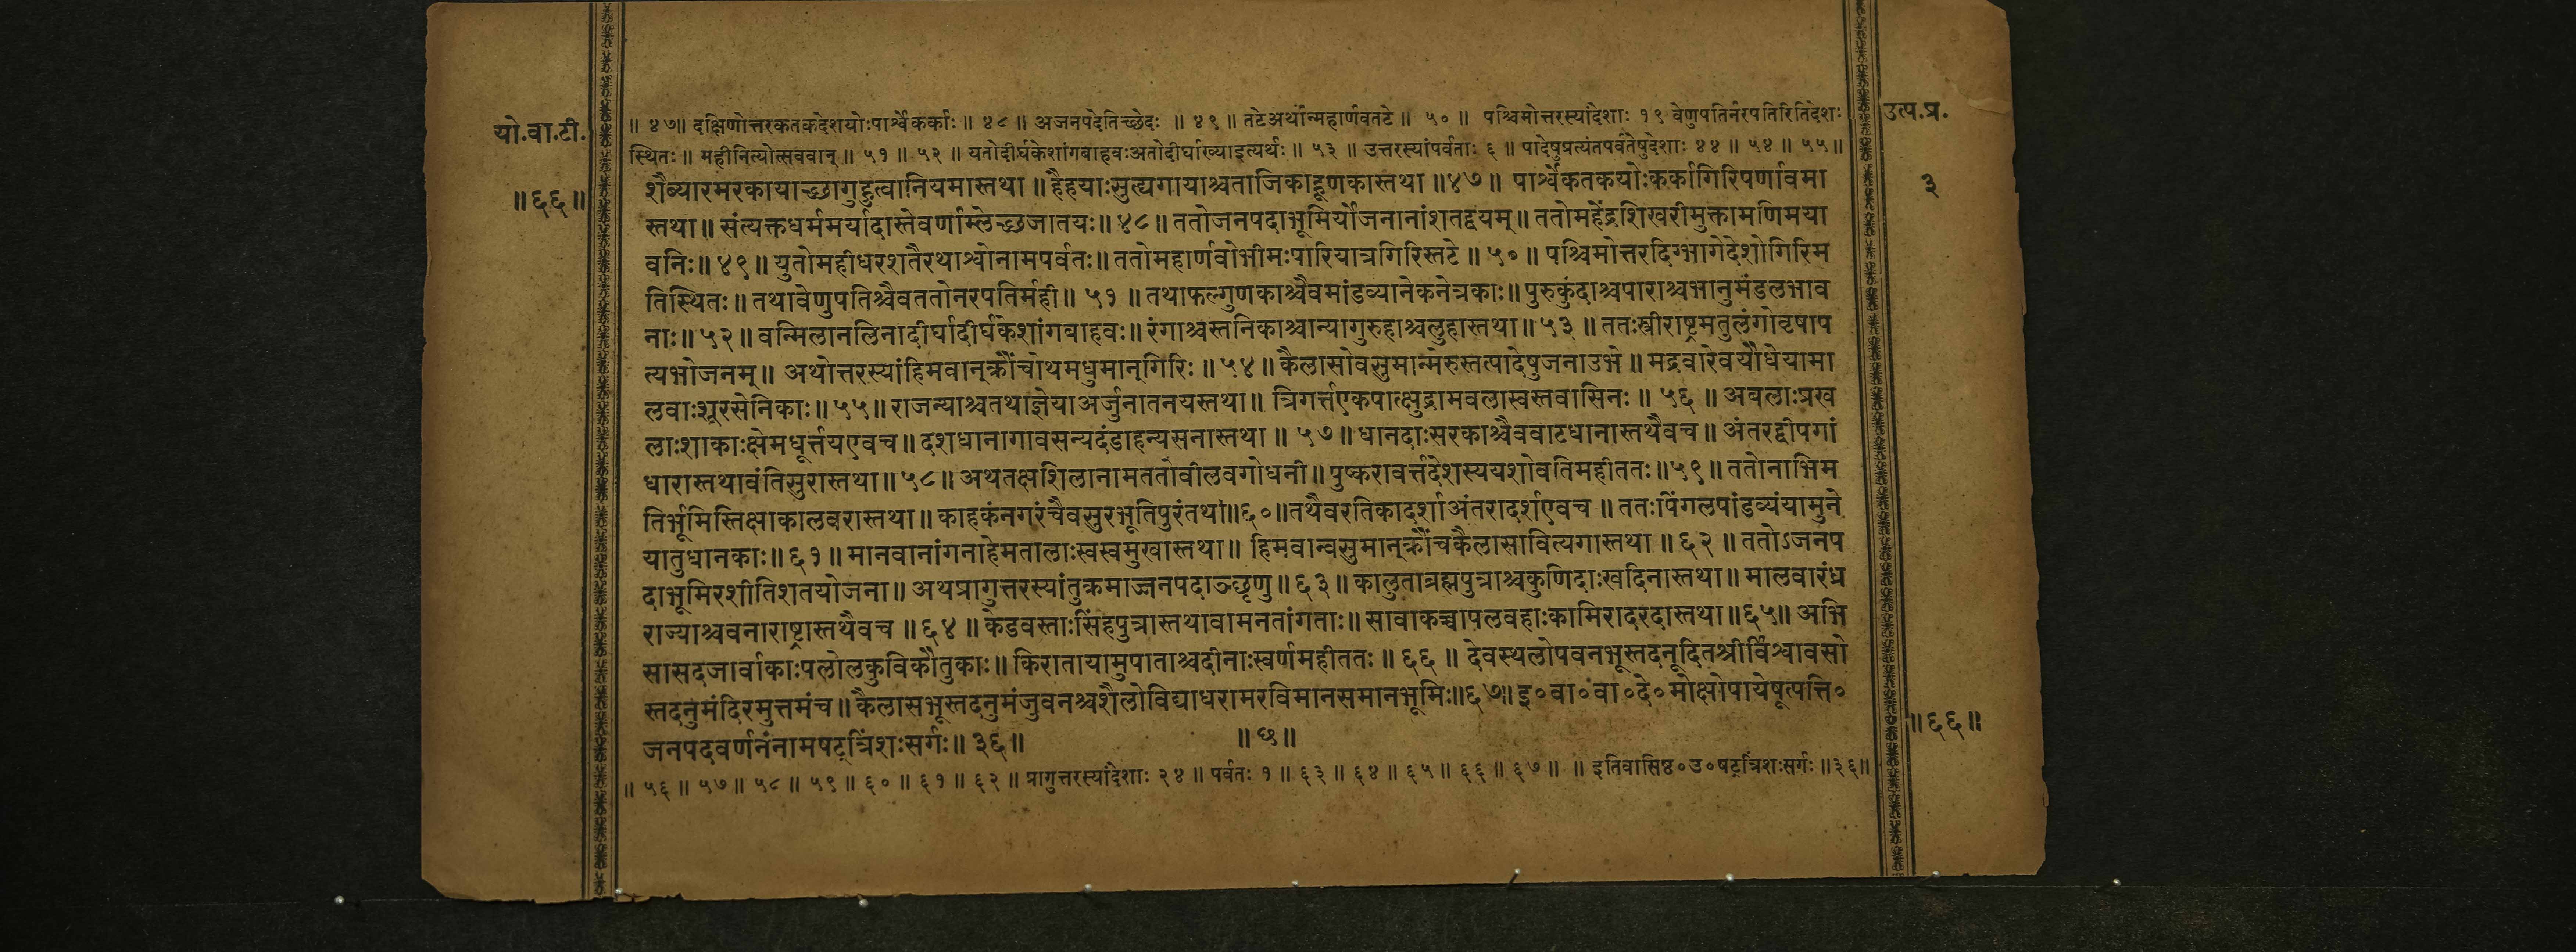 यो.वा.टी.
॥६६॥
उत्प.प्र.
३
॥ ४७॥ दक्षिणोत्तरकतकदेशयोःपार्श्वेकर्काः ॥ ४८ ॥ अजनपदेतिच्छेदः ॥ ४९ ॥ तटेअर्थान्महार्णवतटे ॥ ५० ॥ पश्चिमोत्तरस्यांदेशाः १९ वेणुपतिर्नरपतिरितिदेशः
स्थितः ॥ महीनित्योत्सववान् ॥ ५१ ॥ ५२ ॥ यतोदीर्घकेशांगबाहवःअतोदीर्घाख्याइत्यर्थः ॥ ५३ ॥ उत्तरस्यांपर्वताः ६ ॥ पादेषुप्रत्यंतपर्वतेषुदेशाः ४४ ॥ ५४ ॥ ५५॥
शैब्यारमरकायाच्छागुहुत्वानियमास्तथा ॥ हैहयाःसुत्द्यगायाश्चताजिकाहूणकास्तथा ॥४७॥ पार्श्वेकतकयोःकर्कागिरिपर्णावमा
स्तथा॥ संत्यक्तधर्ममर्यादास्तेवर्णाम्लेच्छजातयः॥ ४८॥ ततोजनपदाभूमिर्योजनानांशतद्वयम्॥ ततोमहेंद्रशिखरीमुक्तामणिमया
वनिः॥ ४९॥ युतोमहीधरशतैरथाश्वोनामपर्वतः॥ ततोमहार्णवोभीमःपारियात्रगिरिस्तटे ॥ ५० ॥ पश्चिमोत्तरदिग्भागेदेशोगिरिम
तिस्थितः॥ तथावेणुपतिश्चैवततोनरपतिर्मही॥ ५१ ॥ तथाफल्गुणकाश्चैवमांडव्यानेकनेत्रकाः॥ पुरुकुंदाश्चपाराश्चभानुमंडलभाव
नाः॥ ५२॥ वन्मिलानलिनादीर्घादीर्घकेशांगबाहवः॥ रंगाश्चस्तनिकाश्चान्यागुरुहाश्चलुहास्तथा॥ ५३ ॥ ततःस्त्रीराष्ट्रमतुलंगोवृषाप
त्यभोजनम्॥ अथोत्तरस्यांहिमवान्क्रौंचोथमधुमान्गिरिः ॥ ५४॥ कैलासोवसुमान्मेरुस्तत्पादेषुजनाउभे ॥ मद्रवारेवयौधेयामा
लवाःशूरसेनिकाः॥ ५५॥ राजन्याश्चतथाज्ञेयाअर्जुनातनयस्तथा॥ त्रिगर्त्तएकपात्क्षुद्रामवलास्वस्तवासिनः ॥ ५६ ॥ अबलाःप्रख
लाःशाकाःक्षेमधूर्त्तयएवच॥ दशधानागावसन्यदंडाहन्यसनास्तथा ॥ ५७॥ धानदाःसरकाश्चैववाटधानास्तथैवच॥ अंतरद्वीपगां
धारास्तथावंतिसुरास्तथा॥ ५८॥ अथतक्षशिलानामततोवीलवगोधनी॥ पुष्करावर्त्तदेशस्ययशोवतिमहीततः॥५९॥ ततोनाभिम
तिर्भूमिस्तिक्षाकालवरास्तथा॥ काहकंनगरंचैवसुरभूतिपुरंतथा॥६०॥तथैवरतिकादर्शाअंतरादर्शएवच ॥ ततःपिंगलपांडव्यंयामुने
यातुधानकाः॥ ६१॥ मानवानांगनाहेमतालाःस्वस्वमुखास्तथा॥ हिमवान्वसुमान्क्रौंचकैलासावित्यगास्तथा ॥ ६२ ॥ ततोऽजनप
दाभूमिरशीतिशतयोजना॥ अथप्रागुत्तरस्यांतुक्रमाज्जनपदाञ्छृणु॥ ६३॥ कालुताब्रह्मपुत्राश्चकुणिदाःखदिनास्तथा॥ मालवारंध्र
राज्याश्चवनाराष्ट्रास्तथैवच ॥ ६४ ॥ केडवस्ताःसिंहपुत्रास्तथावामनतांगताः॥ सावाकच्चापलवहाःकामिरादरदास्तथा॥६५॥ अभि
सासदजार्वाकाःपलोलकुविकौतुकाः॥ किरातायामुपाताश्चदीनाःस्वर्णमहीततः ॥ ६६ ॥ देवस्थलोपवनभूस्तदनूदितश्रीर्विश्वावसो
स्तदनुमंदिरमुत्तमंच॥ कैलासभूस्तदनुमंजुवनश्चशैलोविद्याधरामरविमानसमानभूमिः॥६७॥ इ०वा०वा०दे०मोक्षोपायेषूत्पत्ति०
जनपदवर्णनंनामषट्त्रिंशःसर्गः॥ ३६॥ ॥ छ॥
॥६६॥
॥ ५६ ॥ ५७॥ ५८ ॥ ५९ ॥ ६० ॥ ६१ ॥ ६२ ॥ प्रागुत्तरस्यांदेशाः २४ ॥ पर्वतः १ ॥ ६३ ॥ ६४ ॥ ६५ ॥ ६६ ॥ ६७॥ ॥ इतिवासिष्ठ०उ०षट्त्रिंशःसर्गः ॥३६॥